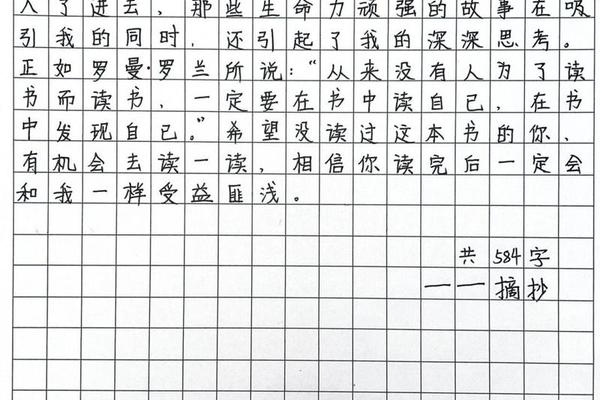 入了进去，那些生命力顽强的故事在吸
引我的同时，还引起了我的深深思考。
正如罗曼·罗兰所说：“从来没有人为了读
书而读书，一定要在书中读自己，在书
中发现自己。”希望没读过这本书的你、
有机会去读一读，相信你读完后一定会
和我一样受益匪浅。
共 584字
——摘抄